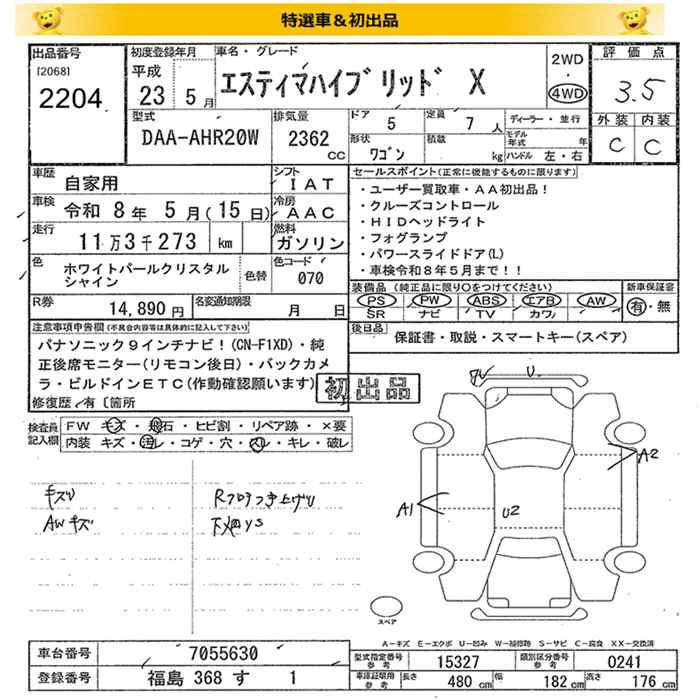 特選車&初出品
出品番号
[2068]
2204
初度登録年月
平成
23 5月
車名・グレード
エスティマハイブリッド X
2WD
・
4WD
評価点
3.5
外装 内装
C C
型式
DAA-AHR20W
排気量
2362
CC
ドア
5
定員
7人
形状
ワゴン
積載
kg
ディーラー・並行
モデル年式 年
ハンドル 左・右
車歴
自家用
シフト
IAT
車検 令和 8年 5月(15日)
冷房
AAC
走行
11万3千273 km
燃料
ガソリン
色
ホワイトパールクリスタル
シャイン
色替
色コード
070
R券
14,890円
名変通知期限
月 日
セールスポイント(正常に機能するものに限ります)
・ユーザー買取車・AA初出品!
・クルーズコントロール
・HIDヘッドライト
・フォグランプ
・パワースライドドア(L)
・車検令和8年5月まで!!
装備品(純正品に限り○をつけてください)
PS・PW・ABS・エアB・AW
SR ナビ TV カワ
新車保証書
有・無
後日品
保証書・取説・スマートキー(スペア)
注意事項申告欄(不具合内容等は具体的に記入して下さい)
パナソニック9インチナビ!(CN-F1XD)・純
正後席モニター(リモコン後日)・バックカメ
ラ・ビルドインETC(作動確認願います)
修復歴・有〔箇所
初出品
検査員
記入欄
FW キズ・飛石・ヒビ割・リペア跡・×要
内装 キズ・汚レ・コゲ・穴・スレ・キレ・破レ
キズリ
AWキズ
Rフロアつき上げU
下廻りS
U
A1
A2
U2
スペア
A-キズ E-エクボ U-凹み W-補修跡 S-サビ C-腐食 XX-交換済
車台番号
7055630
登録番号
福島 368 す 1
型式指定番号
参考
15327
類別区分番号
参考
0241
車庫証明用
参考
長さ 480cm 幅 182cm 高さ 176cm